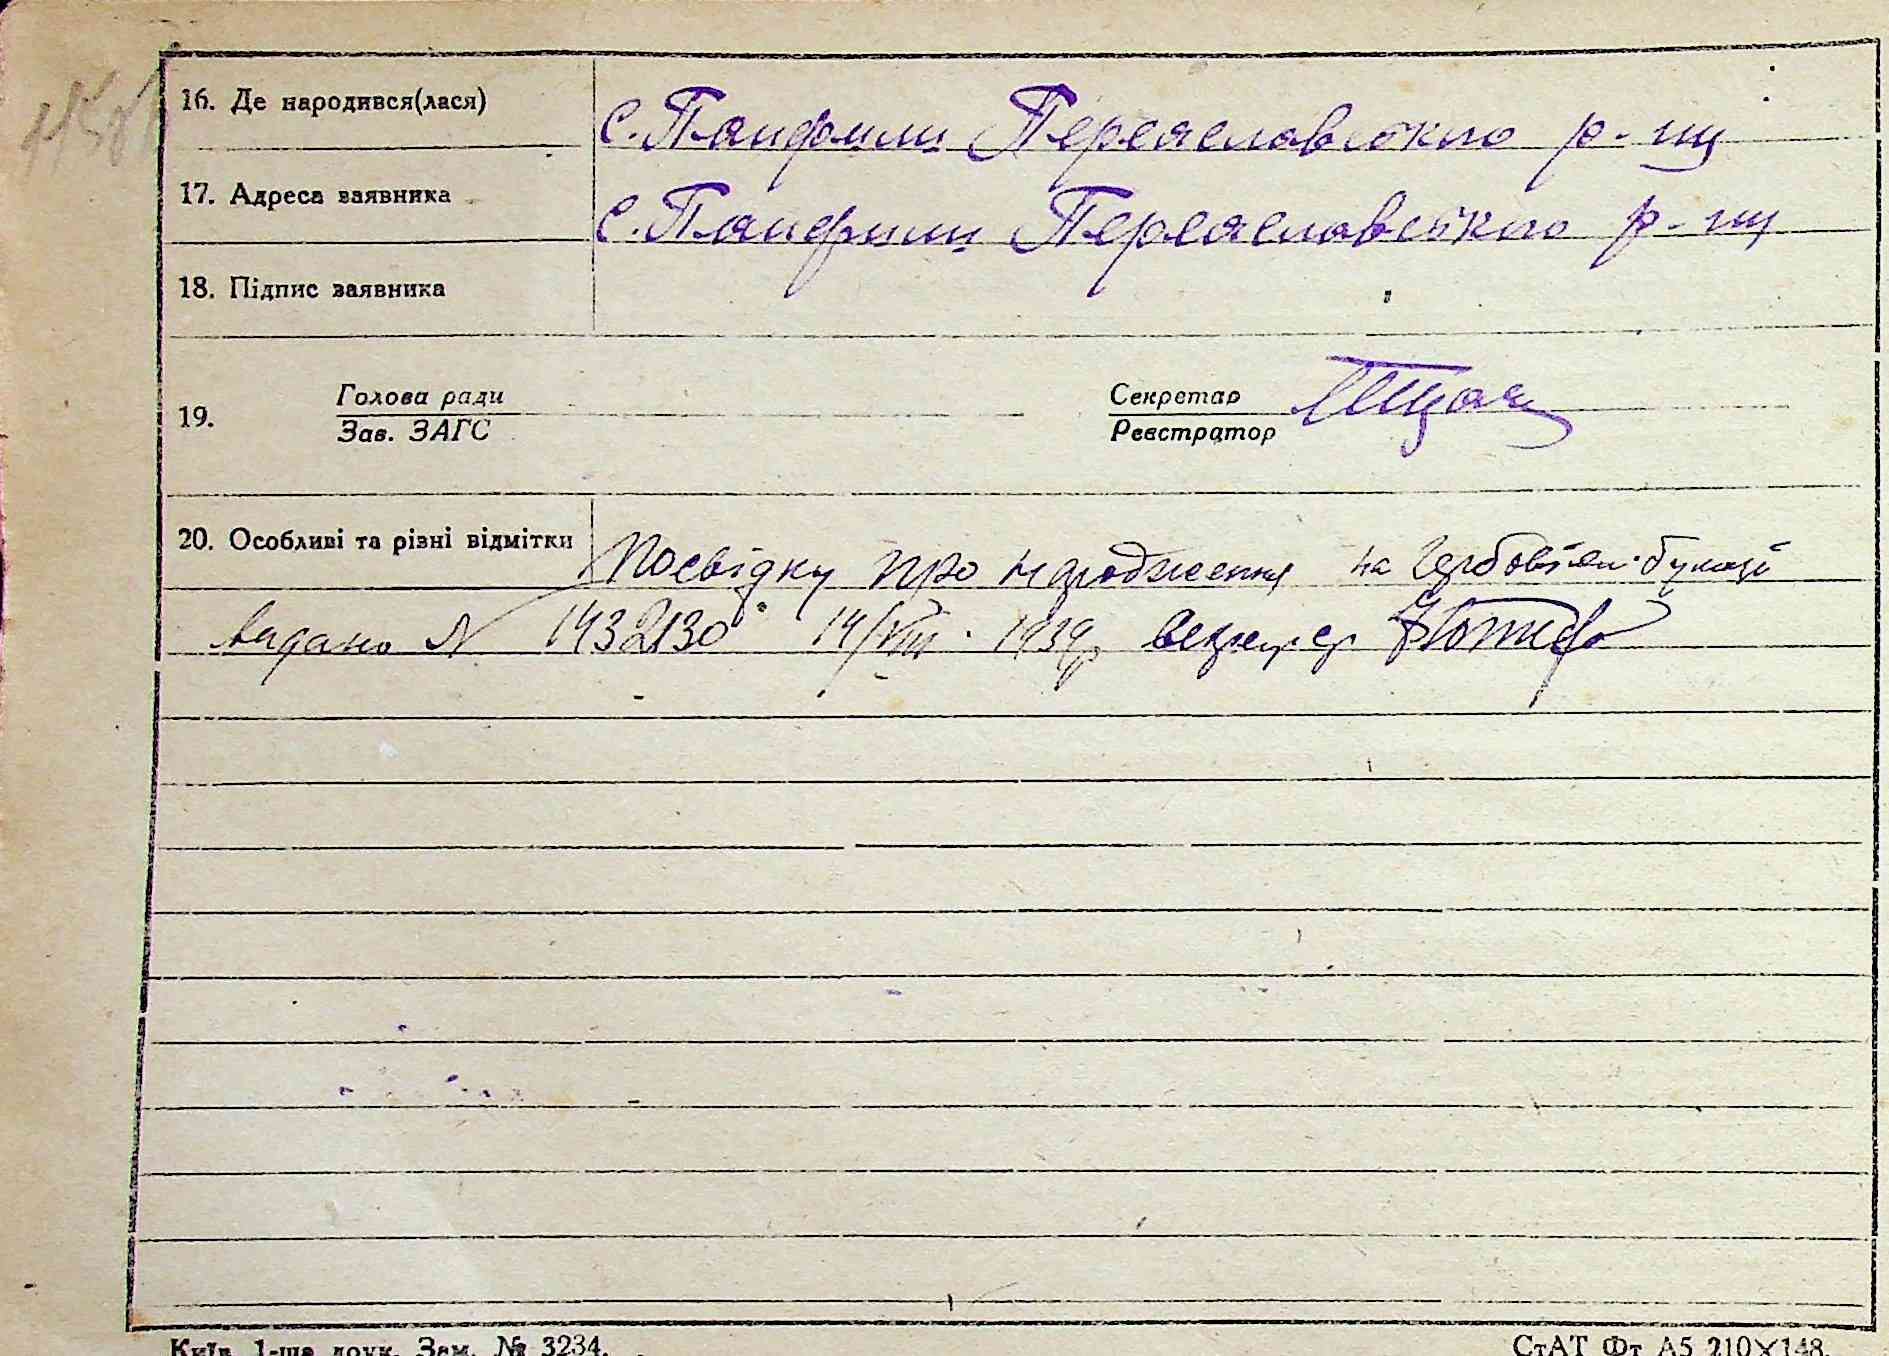 16. Де народився(лася) с. Панфили Переяславського р-ну
17. Адреса заявника с. Панфили Переяславського р-ну
18. Підпис заявника
19. Голова ради Секретар
Зав. ЗАГС Реєстратор
20. Особливі та різні відмітки Посвідку про народження на гербовім бумазі
видано № 1432130 14/VIII 1939р
Київ, 1-ша друк. Зам. № 3234. СтАТ Фт А5 210×148.